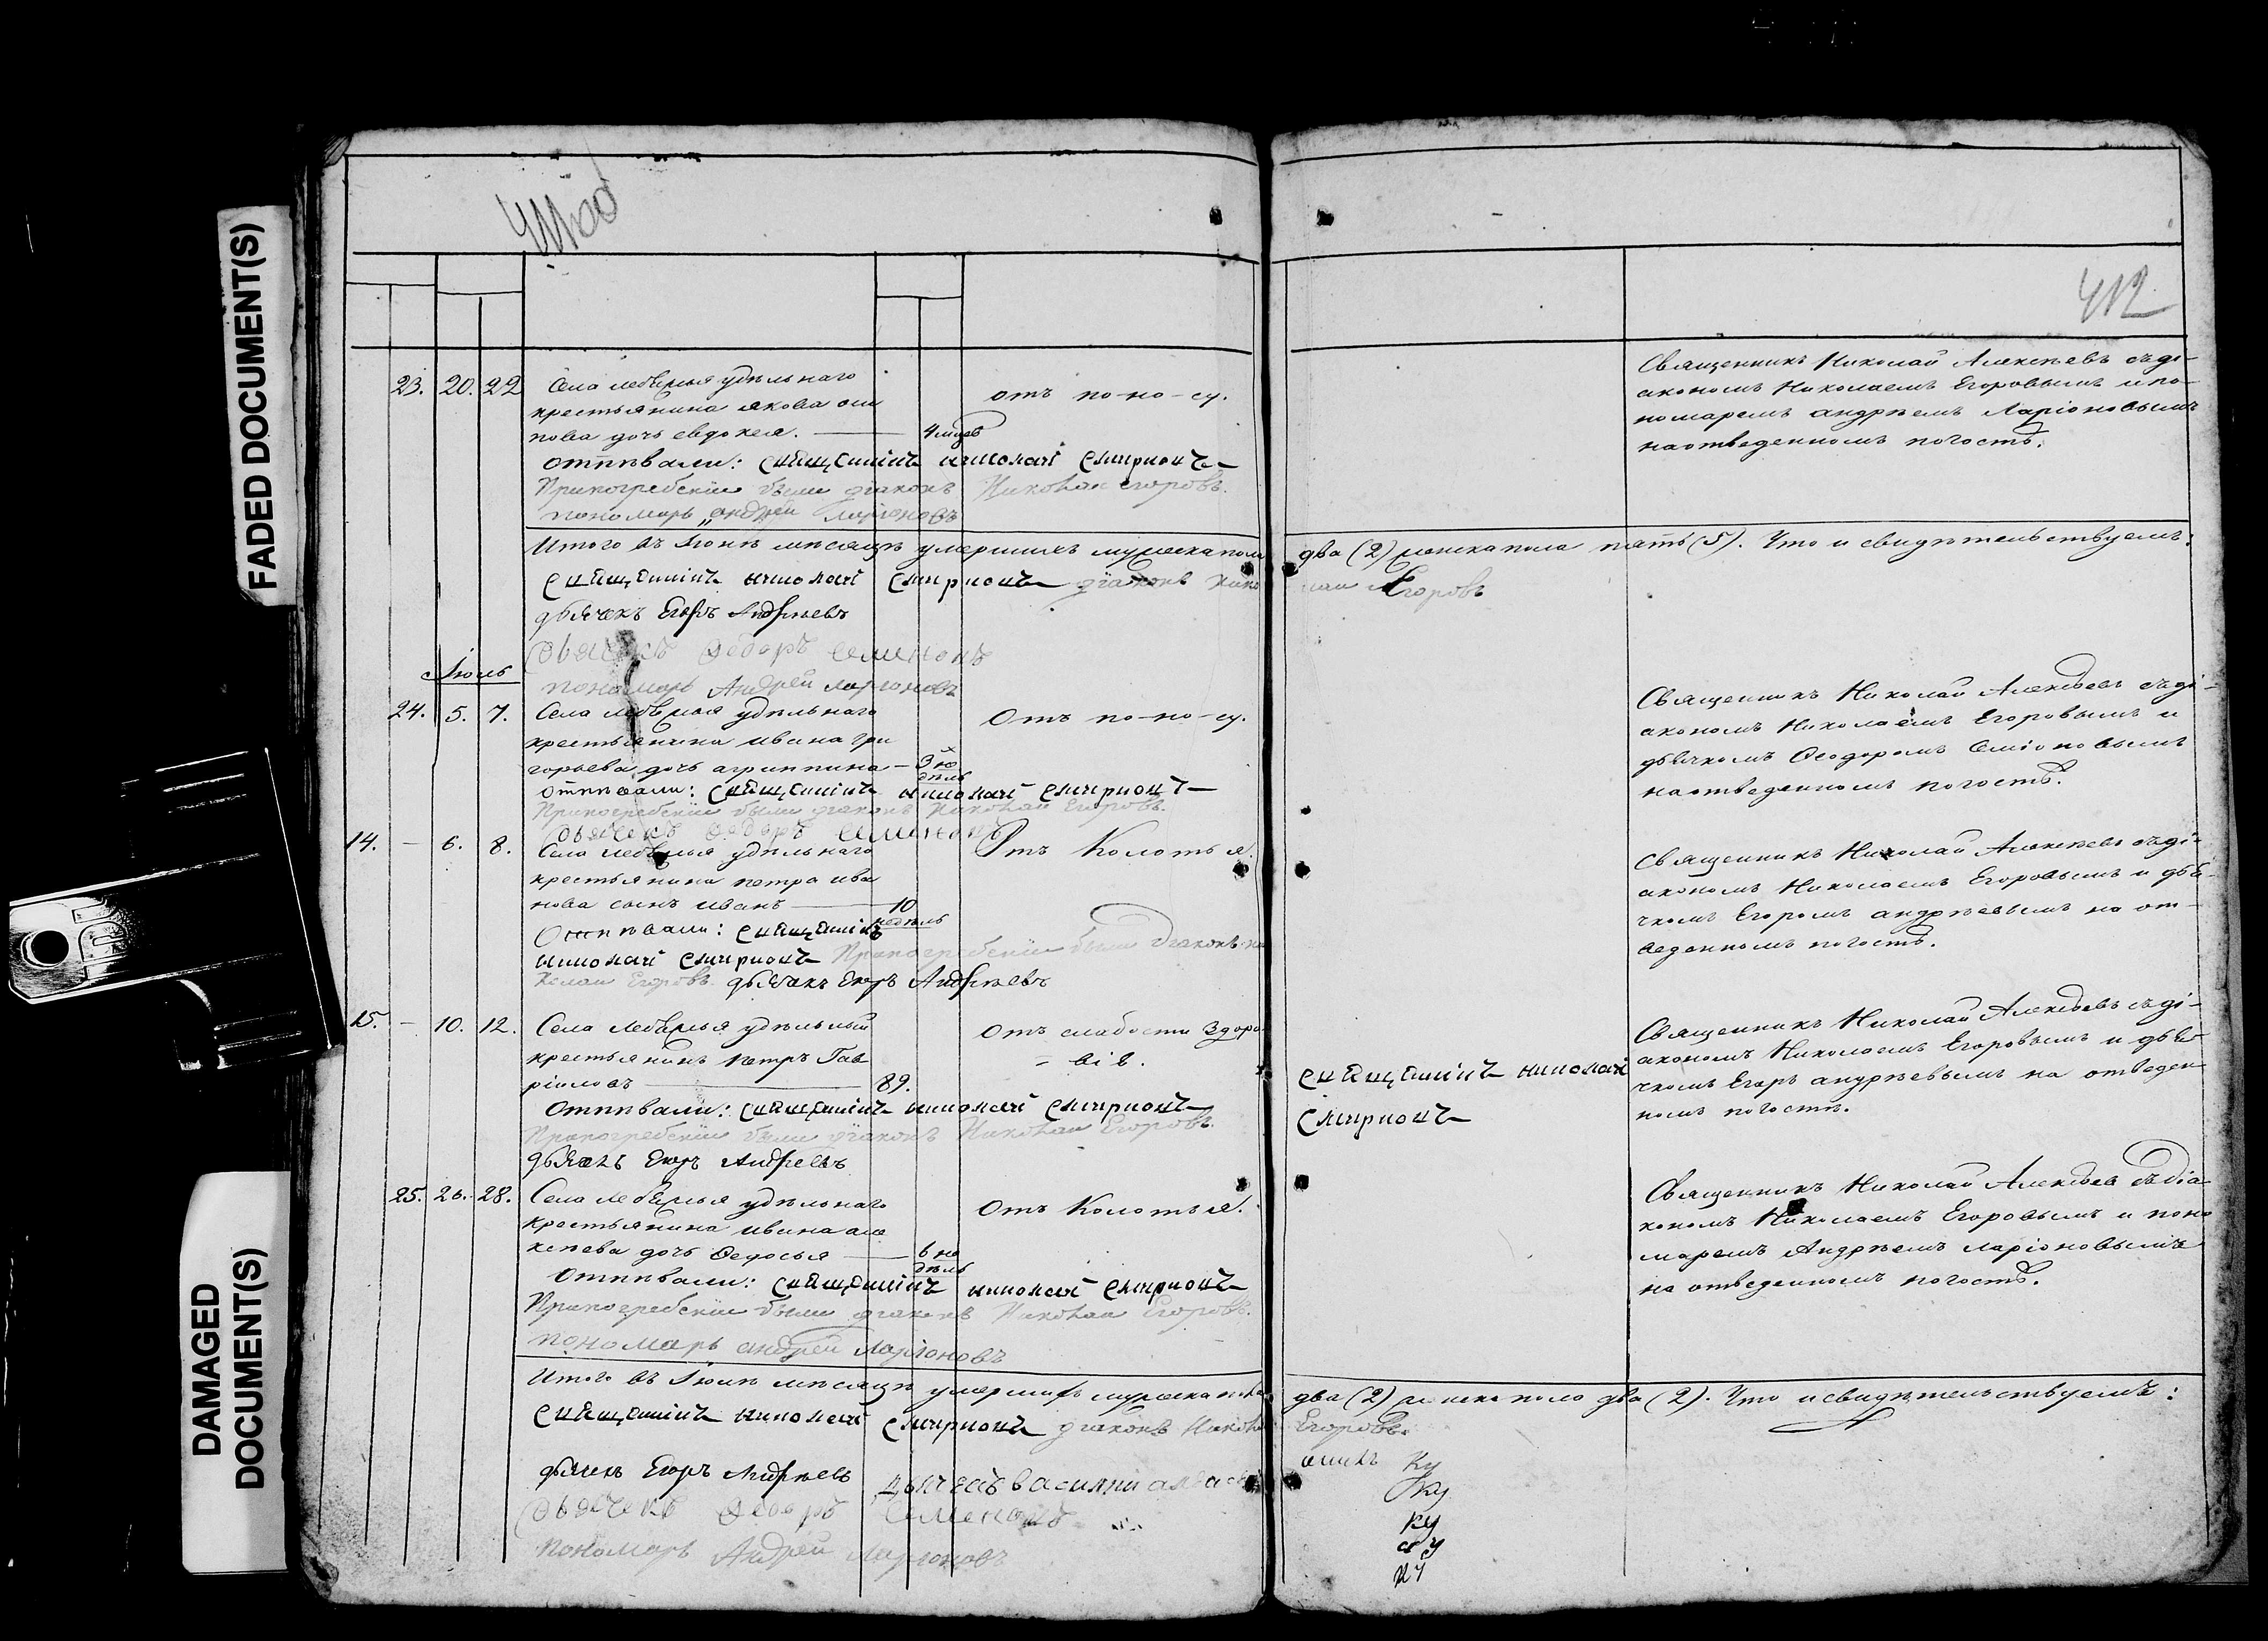 FADED DOCUMENT(S)
DAMAGED
DOCUMENT(S)
412
23. 20. 22
Села лебяжья удѣльнаго
крестьянина якова оси
пова дочь евдокея. — 4 мцов
отъ по-но-су.
Отпѣвали: священникъ николай смирновъ
Припогребении были диаконъ Николаи егоровъ.
пономарь андрей Ларионовъ
Священникъ Николай Алексѣевъ съ ді-
акономъ Николаемъ Егоровымъ и по-
номаремъ андрѣемъ Ларіоновымъ
на отведенномъ погостѣ.
Итого въ Іюнѣ мѣсяцѣ умершихъ мужеска пола два (2) женска пола пять (5). Что и свидѣтельствуемъ:
священникъ николай смирновъ диаконъ Николаи Егоровъ
дьячекъ Егоръ Андрѣевъ
дьячекъ Федоръ Семеновъ
пономарь Андрей Ларионовъ
Іюль
24. 5. 7.
Села лебяжья удѣльнаго
крестьянина ивана гри
горьева дочь агрипина — 3 не
дѣль
Отъ по-но-су.
Отпѣвали: священникъ николай смирновъ
Припогребении были диаконъ Николаи Егоровъ.
дьячекъ Федоръ Семеновъ
Священникъ Николай Алексѣевъ съ ді-
акономъ Николаемъ Егоровымъ и
дьячкомъ Ѳеодоромъ Семіоновымъ
на отведенномъ погостѣ.
14. — 6. 8.
Села лебяжья удѣльнаго
крестьянина петра ива
нова сынъ иванъ — 10
недѣль
Отъ Колотья.
Отпѣвали: священникъ
николай смирновъ Припогребении были диаконъ ни
колаи Егоровъ. дьячекъ Егоръ Андрѣевъ
Священникъ Николай Алексѣевъ съ ді-
акономъ Николаемъ Егоровымъ и дья-
чкомъ Егоромъ андрѣевымъ на от-
веденномъ погостѣ.
15. — 10. 12.
Села Лебяжья удѣльный
крестьянинъ Петръ Гав
ріиловъ — 89.
Отъ слабости здоро
-вія.
Отпѣвали: священникъ николай смирновъ
Припогребении были диаконъ Николаи Егоровъ.
дьячекъ Егоръ Андрѣевъ
священникъ николай
смирновъ
Священникъ Николай Алексѣевъ съ ді-
акономъ Николаемъ Егоровымъ и дья-
чкомъ Егоръ андрѣевымъ на отведен
номъ погостѣ.
25. 26. 28.
Села лебяжья удѣльнаго
крестьянина ивана але
ксѣева дочь Ѳедосья — 6 не
дѣль
Отъ Колотья.
Отпѣвали: священникъ николай смирновъ
Припогребении были диаконъ Николаи Егоровъ.
пономарь андрей Ларионовъ
Священникъ Николай Алексѣевъ съ діа
кономъ Николаемъ Егоровымъ и поно
маремъ Андрѣемъ Ларіоновымъ
на отведенномъ погостѣ.
Итого въ Іюлѣ мѣсяцѣ умершихъ мужеска пола два (2) женска пола два (2). Что и свидѣтельствуемъ:
священникъ николай смирновъ диаконъ Николаи Егоровъ.
дьячекъ Егоръ Андрѣевъ
дьячекъ Федоръ Семеновъ
пономарь Андрей Ларионовъ